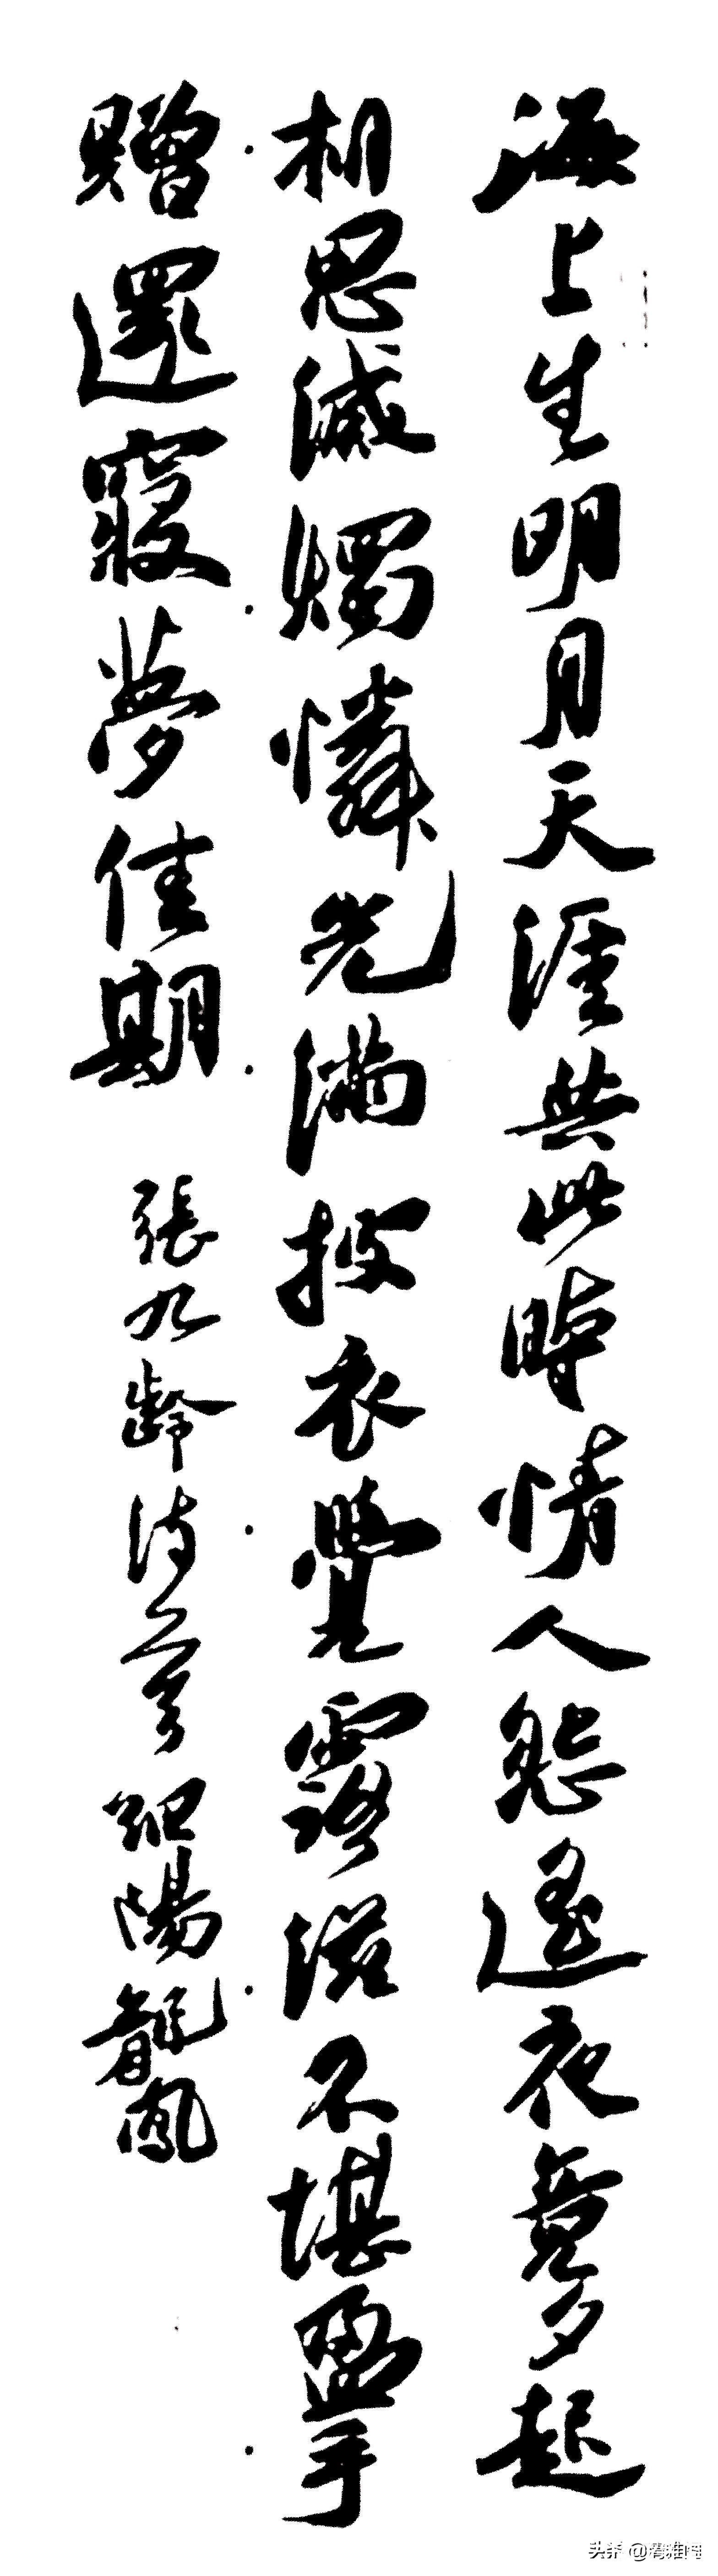 海上生明月天涯共此時情人怨遙夜竟夕起
相思滅燭憐光滿披衣覺露滋不堪盈手
贈還寢夢佳期 張九齡詩 陽龍鳳
头条